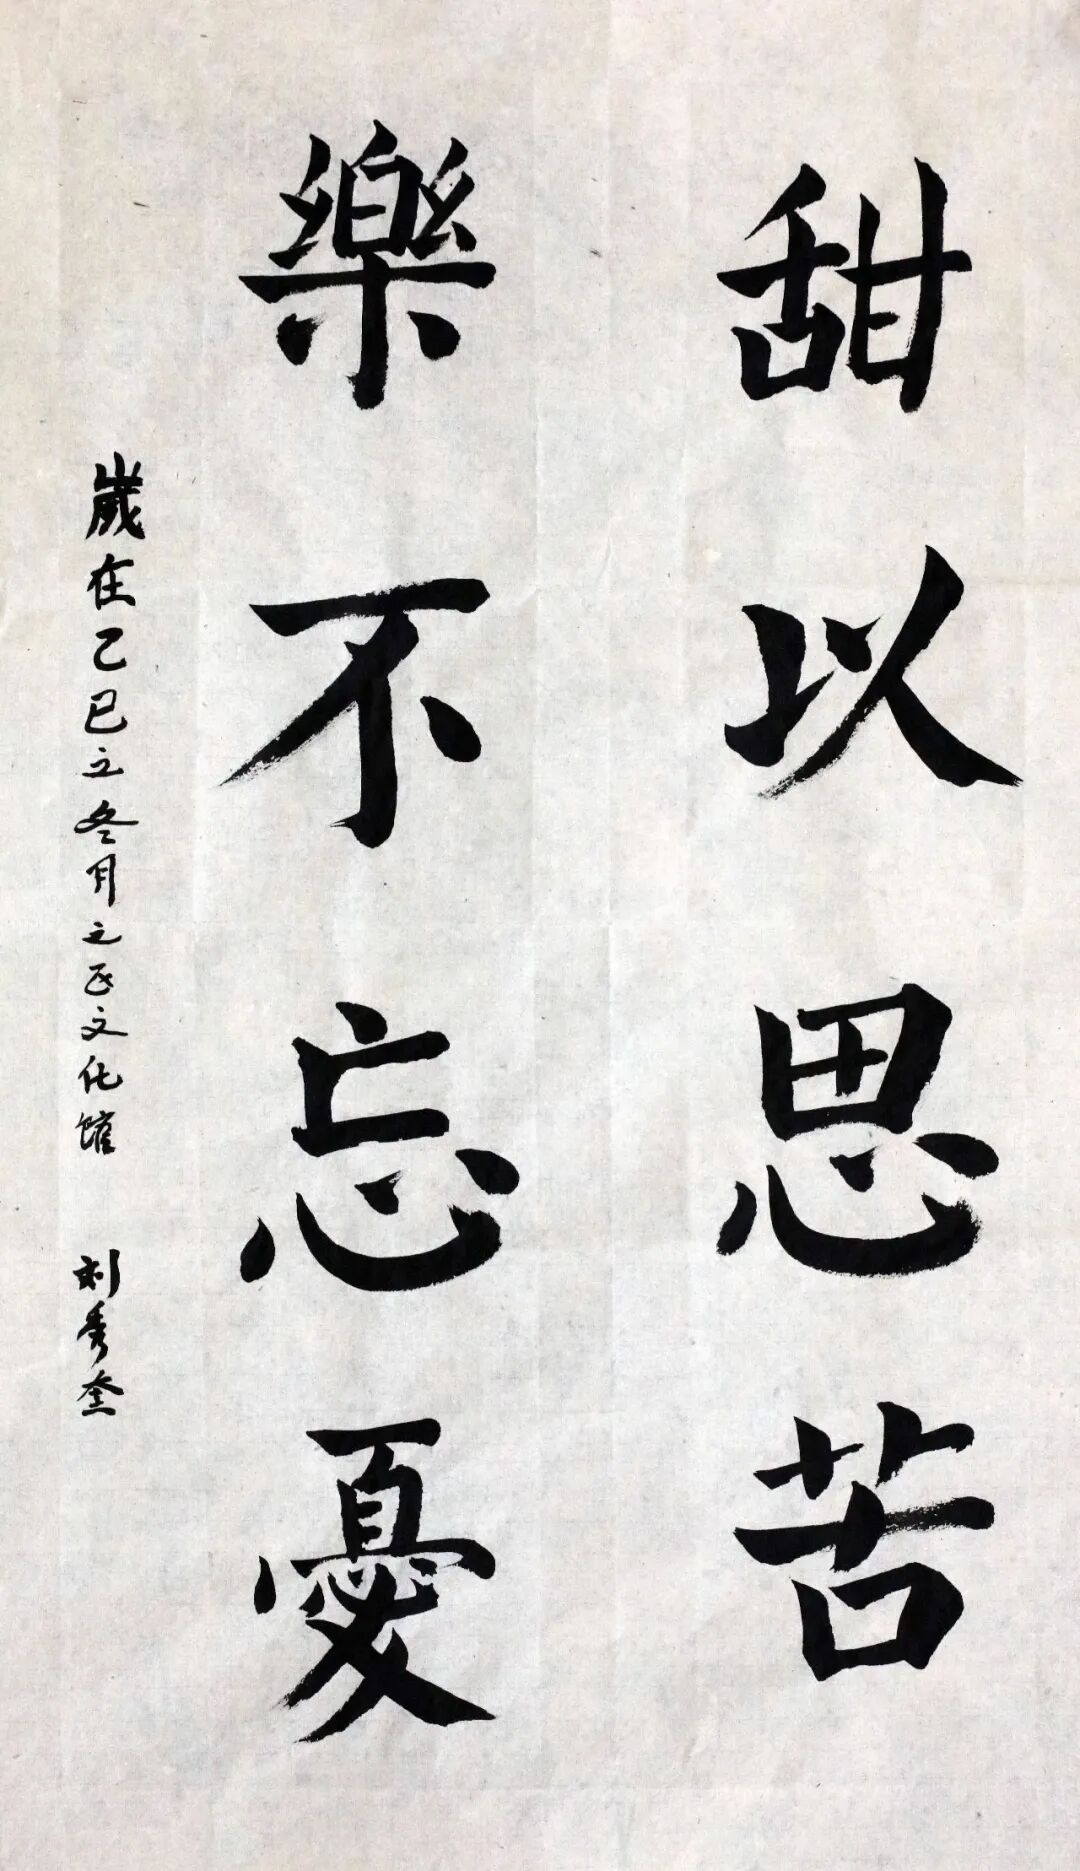 甜以思苦
樂不忘憂
歲在乙巳立冬月之 文化館 刘秀奎